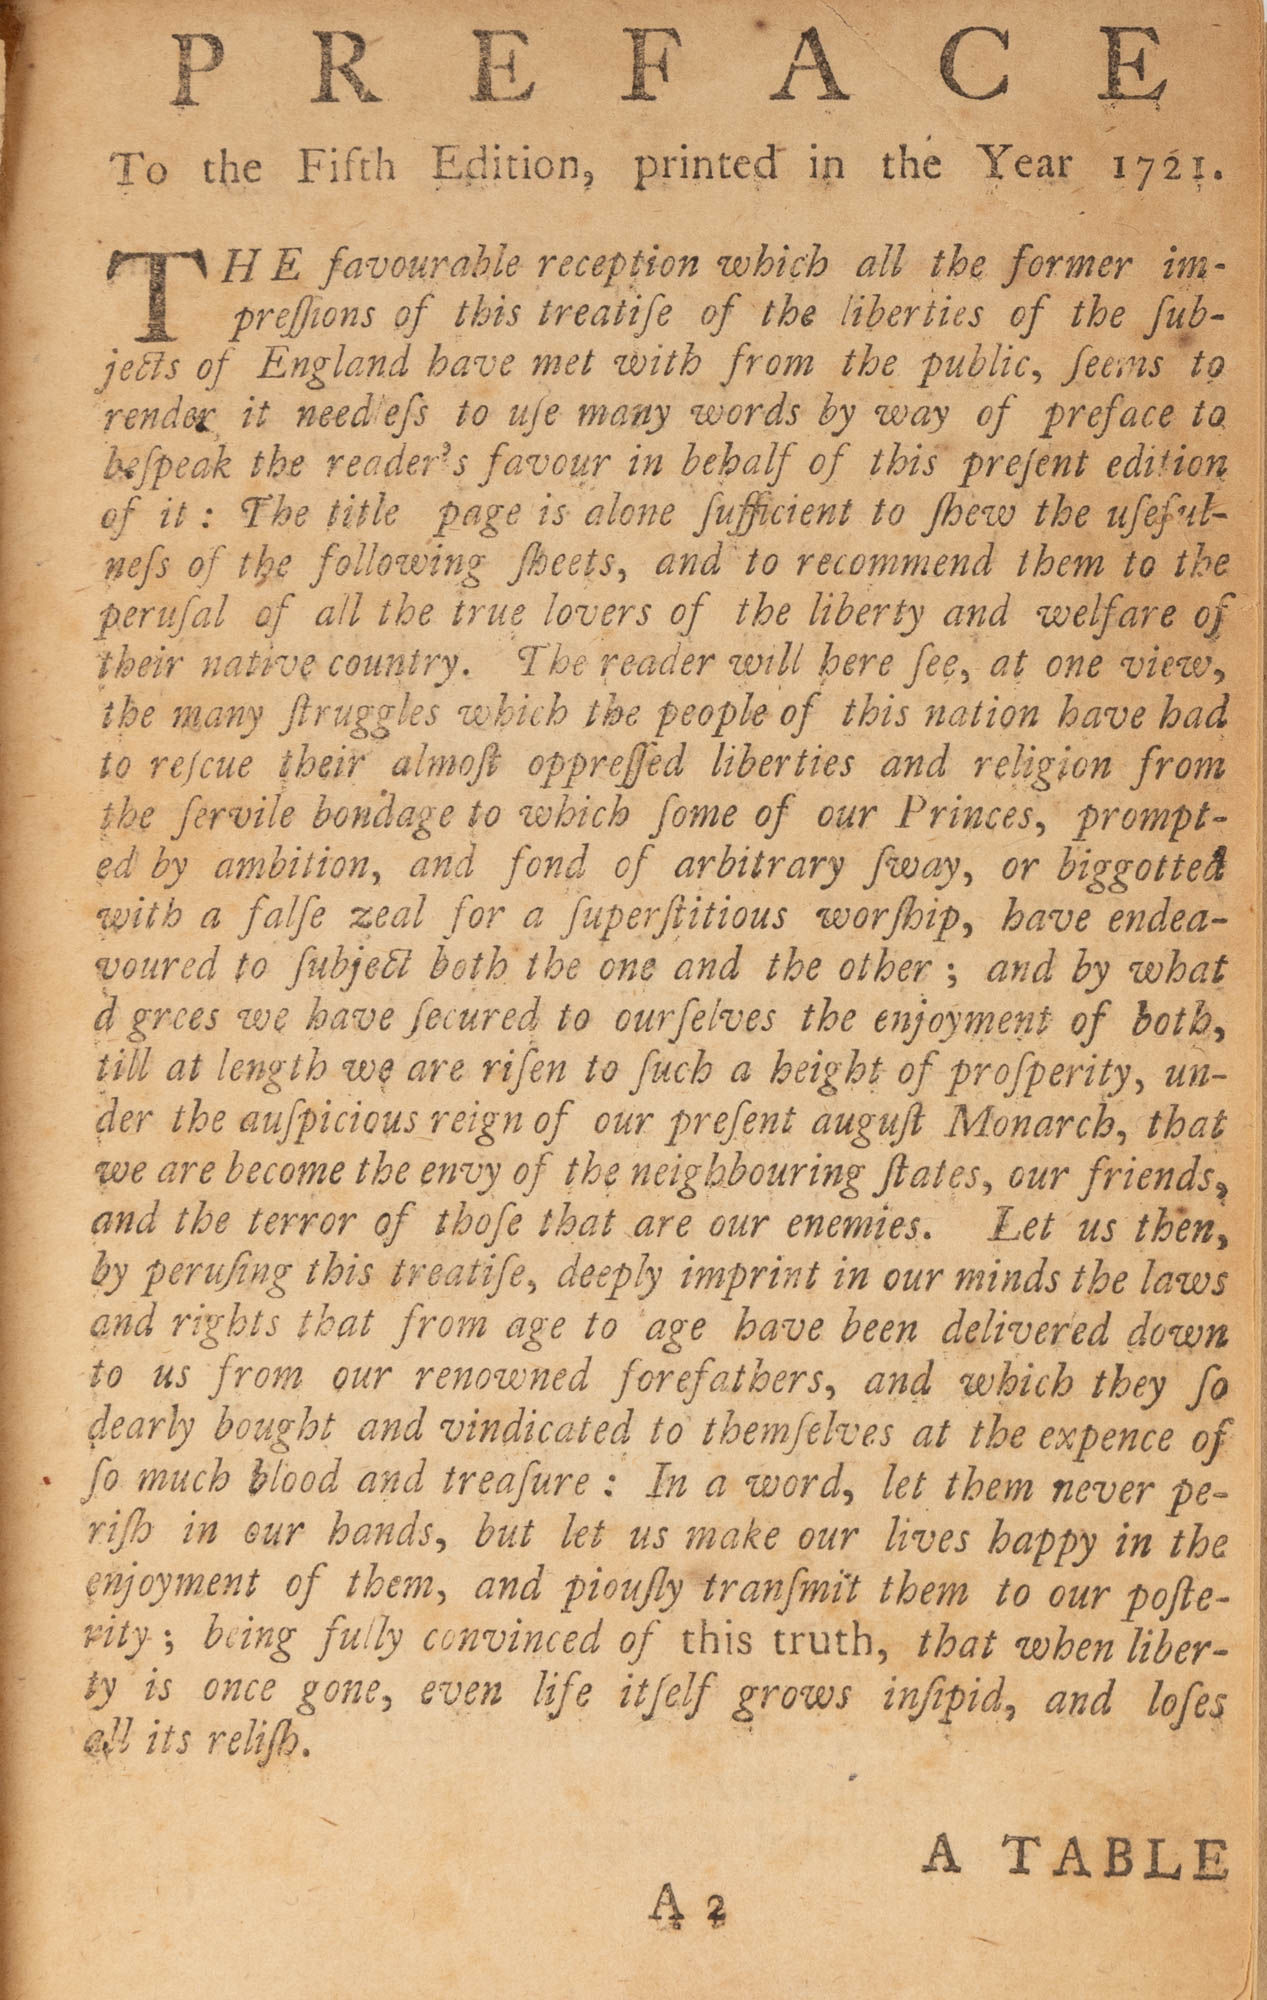 PREFACE
To the Fifth Edition, printed in the Year 1721.
THE favourable reception which all the former im-
preſſions of this treatiſe of the liberties of the ſub-
jects of England have met with from the public, ſeems to
render it needleſs to uſe many words by way of preface to
beſpeak the reader's favour in behalf of this preſent edition
of it: The title page is alone ſufficient to ſhew the uſeful-
neſs of the following ſheets, and to recommend them to the
peruſal of all the true lovers of the liberty and welfare of
their native country. The reader will here ſee, at one view,
the many ſtruggles which the people of this nation have had
to reſcue their almoſt oppreſſed liberties and religion from
the ſervile bondage to which ſome of our Princes, prompt-
ed by ambition, and fond of arbitrary ſway, or biggotted
with a falſe zeal for a ſuperſtitious worſhip, have endea-
voured to ſubject both the one and the other; and by what
d grees we have ſecured to ourſelves the enjoyment of both,
till at length we are riſen to ſuch a height of proſperity, un-
der the auſpicious reign of our preſent auguſt Monarch, that
we are become the envy of the neighbouring ſtates, our friends,
and the terror of thoſe that are our enemies. Let us then,
by peruſing this treatiſe, deeply imprint in our minds the laws
and rights that from age to age have been delivered down
to us from our renowned forefathers, and which they ſo
dearly bought and vindicated to themſelves at the expence of
ſo much blood and treaſure: In a word, let them never pe-
riſh in our hands, but let us make our lives happy in the
enjoyment of them, and piouſly tranſmit them to our poſte-
rity; being fully convinced of this truth, that when liber-
ty is once gone, even life itſelf grows inſipid, and loſes
all its reliſh.
A TABLE
A 2